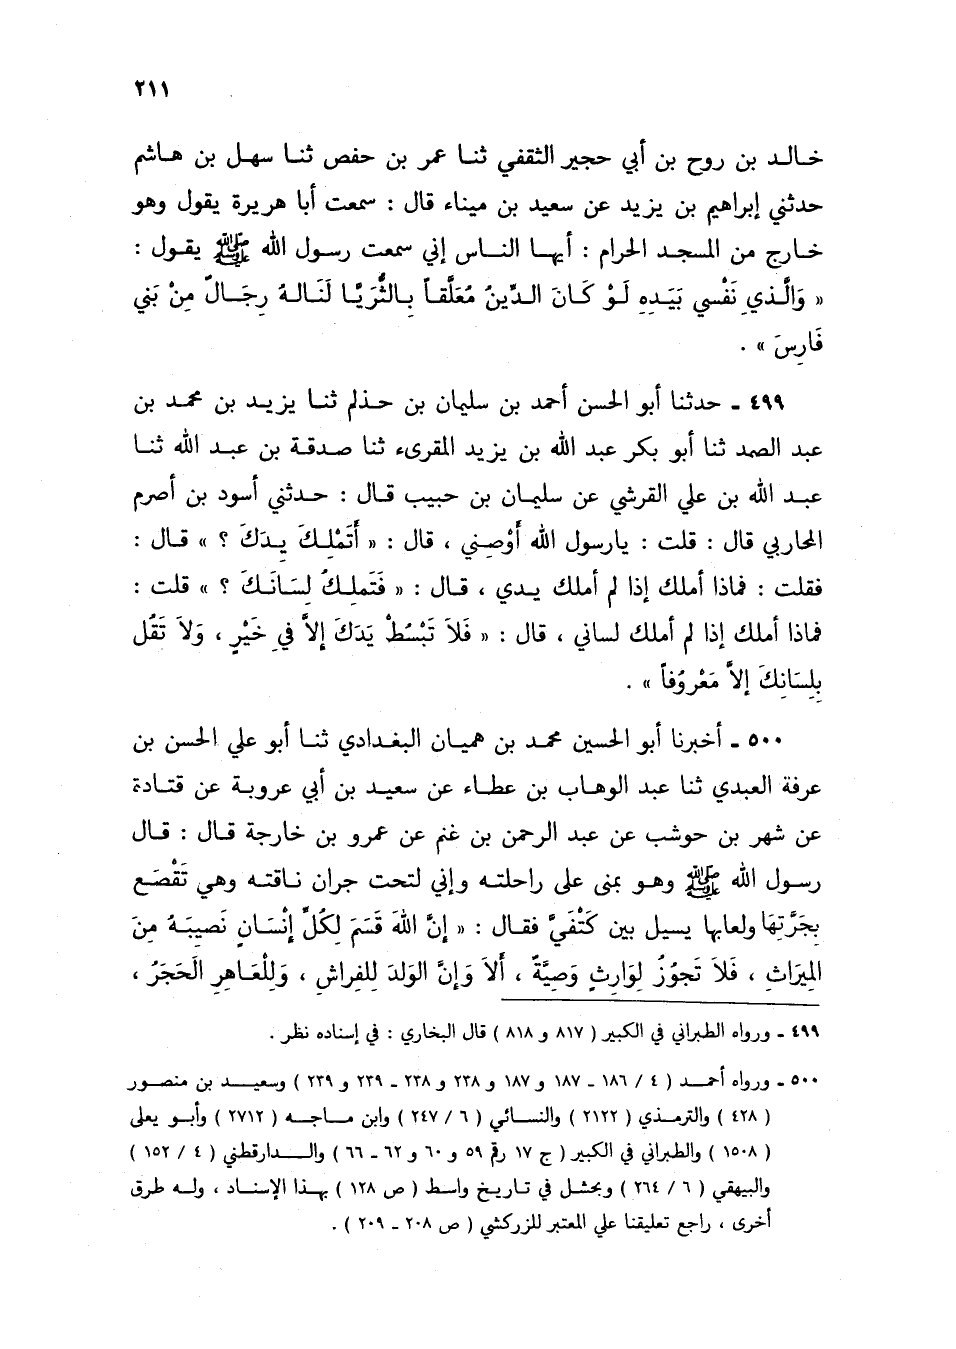 ٢١١
خالد بن روح بن أبي حجير الثقفي ثنا عمر بن حفص ثنا سهل بن هاشم
حدثني إبراهيم بن يزيد عن سعيد بن ميناء قال : سمعت أبا هريرة يقول وهو
خارج من المسجد الحرام : أيها الناس إني سمعت رسول الله ﷺ يقول :
« وَالَّذي نَفْسي بَيَدِهِ لَوْ كَانَ الدِّينُ مُعَلَّقاً بِالثُّرَيَّا لَنَالهُ رِجَالٌ مِنْ بَني
فَارِسَ » .
٤٩٩ ـ حدثنا أبو الحسن أحمد بن سليمان بن حذلم ثنا يزيد بن محمد بن
عبد الصمد ثنا أبو بكر عبد الله بن يزيد المقرىء ثنا صدقة بن عبد الله ثنا
عبد الله بن علي القرشي عن سليمان بن حبيب قال : حدثني أسود بن أصرم
المحاربي قال : قلت : يارسول الله أَوْصِني ، قال : « أَتَمْلِكُ يدَكَ ؟ » قال :
فقلت : فماذا أملك إذا لم أملك يدي ، قال : « فَتَملِكُ لِسَانَكَ ؟ » قلت :
فماذا أملك إذا لم أملك لساني ، قال : « فَلاَ تَبْسُطْ يَدَكَ إلاَّ في خَيْرٍ ، وَلاَ تَقُل
بِلِسَانِكَ إلاَّ مَعْرُوُفاً » .
٥٠٠ ـ أخبرنا أبو الحسين محمد بن هميان البغدادي ثنا أبو علي الحسن بن
عرفة العبدي ثنا عبد الوهاب بن عطاء عن سعيد بن أبي عروبة عن قتادة
عن شهر بن حوشب عن عبد الرحمن بن غنم عن عمرو بن خارجة قال : قال
رسول الله ﷺ وهو بمنى على راحلته وإني لتحت جران ناقته وهي تَقْصَع
بِجَرَّتِهَا ولعابها يسيل بين كَتْفَيَّ فقال : « إنَّ اللهَ قَسَمَ لِكُلِّ إنْسَانٍ نَصِيبَهُ مِنَ
المِيرَاثِ ، فَلاَ تَجوُزُ لِوَارِثٍ وَصِيَّةٌ ، أَلاَ وَإنَّ الوَلَدَ لِلفِراشِ ، وَلِلْعَاهِرِ الَحَجَرُ ،
٤٩٩ ـ ورواه الطبراني في الكبير ( ٨١٧ و ٨١٨ ) قال البخاري : في إسناده نظر .
٥٠٠ ـ ورواه أحمد ( ٤ / ١٨٦ ـ ١٨٧ و ١٨٧ و ٢٣٨ و ٢٣٨ ـ ٢٣٩ و ٢٣٩ ) وسعيد بن منصور
( ٤٢٨ ) والترمذي ( ٢١٢٢ ) والنسائي ( ٦ / ٢٤٧ ) وابن ماجه ( ٢٧١٢ ) وأبو يعلى
( ١٥٠٨ ) والطبراني في الكبير ( ج ١٧ رقم ٥٩ و ٦٠ و ٦٢ ـ ٦٦ ) والدارقطني ( ٤ / ١٥٢ )
والبيهقي ( ٦ / ٢٦٤ ) وبحشل في تاريخ واسط ( ص ١٢٨ ) بهذا الإسناد ، وله طرق
أخرى ، راجع تعليقنا علي المعتبر للزركشي ( ص ٢٠٨ ـ ٢٠٩ ) .